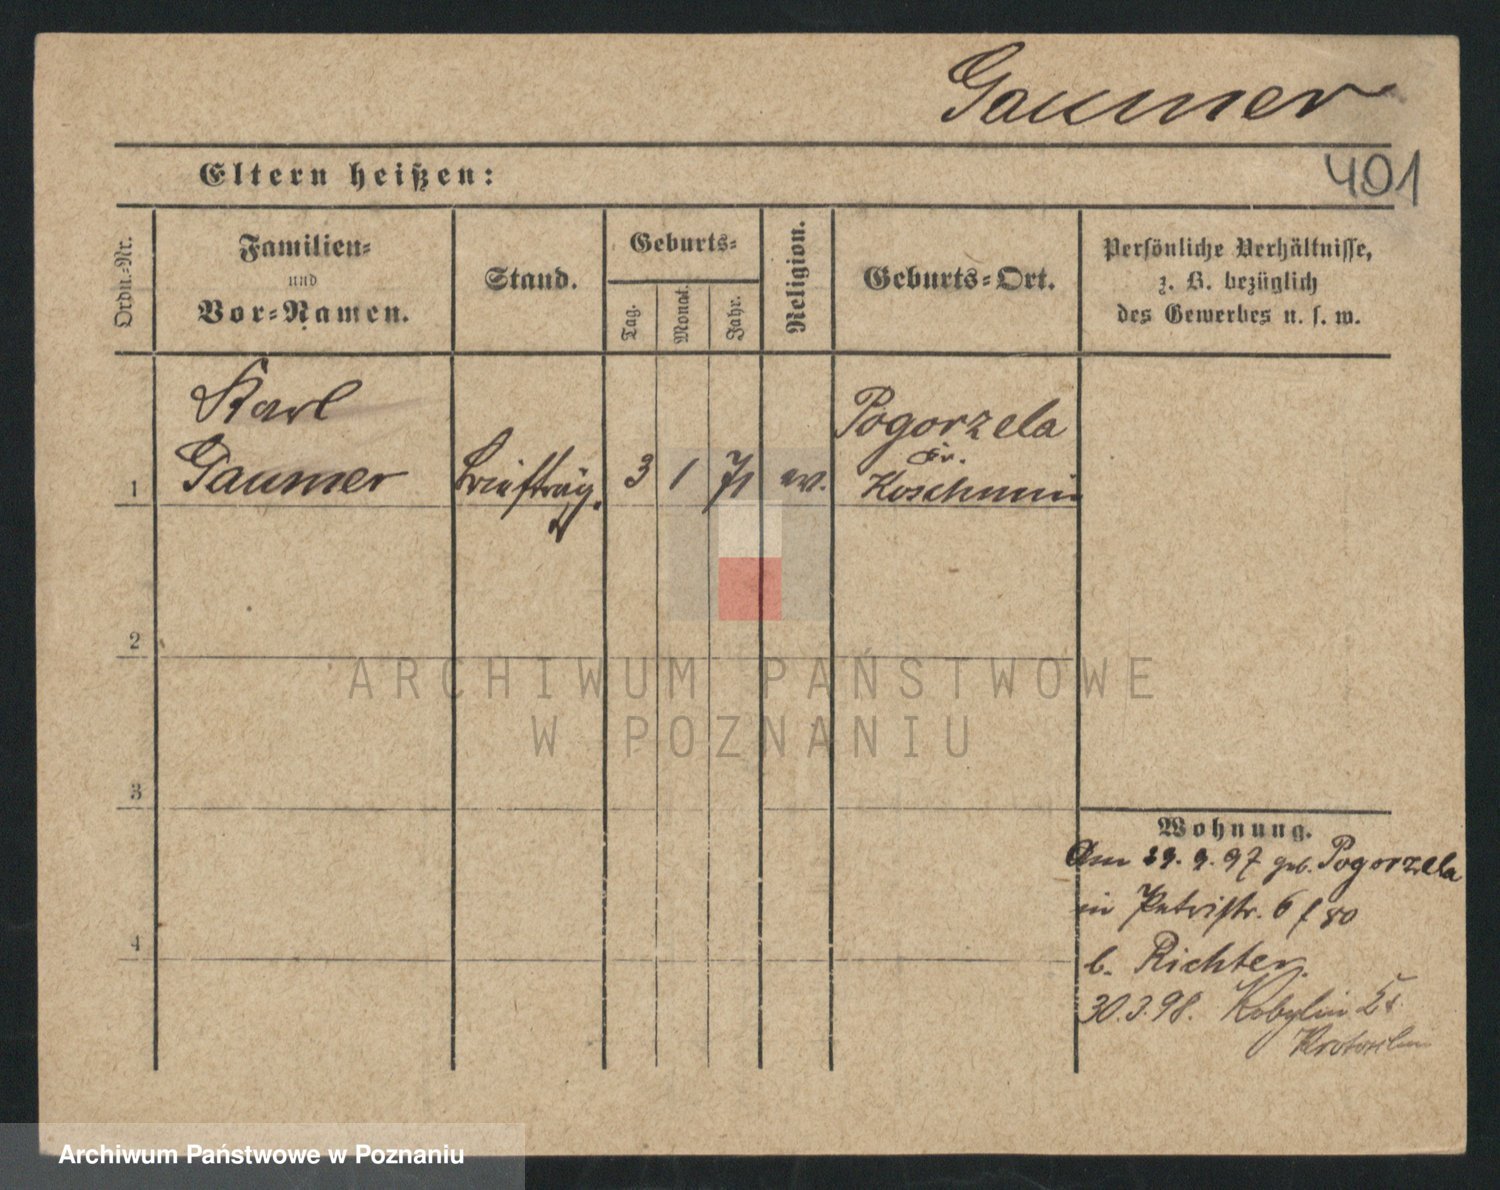 Gaumer
401
Eltern heißen:
Ordn.-Nr.
Familien-
und
Vor-Namen.
Stand.
Geburts-
Tag.
Monat.
Jahr.
Religion.
Geburts-Ort.
Persönliche Verhältnisse,
z. B. bezüglich
des Gewerbes u. s. w.
Karl
Gaumer
1
Briefträg.
3
1
71
ev.
Pogorzela
Kr.
Koschmin
2
3
4
ARCHIWUM PAŃSTWOWE
W POZNANIU
Wohnung.
Am 29. 9. 97 Pogorzela
in Petristr. 6
b. Richter.
30.3.98. Kobylin
Krotoschin
Archiwum Państwowe w Poznaniu